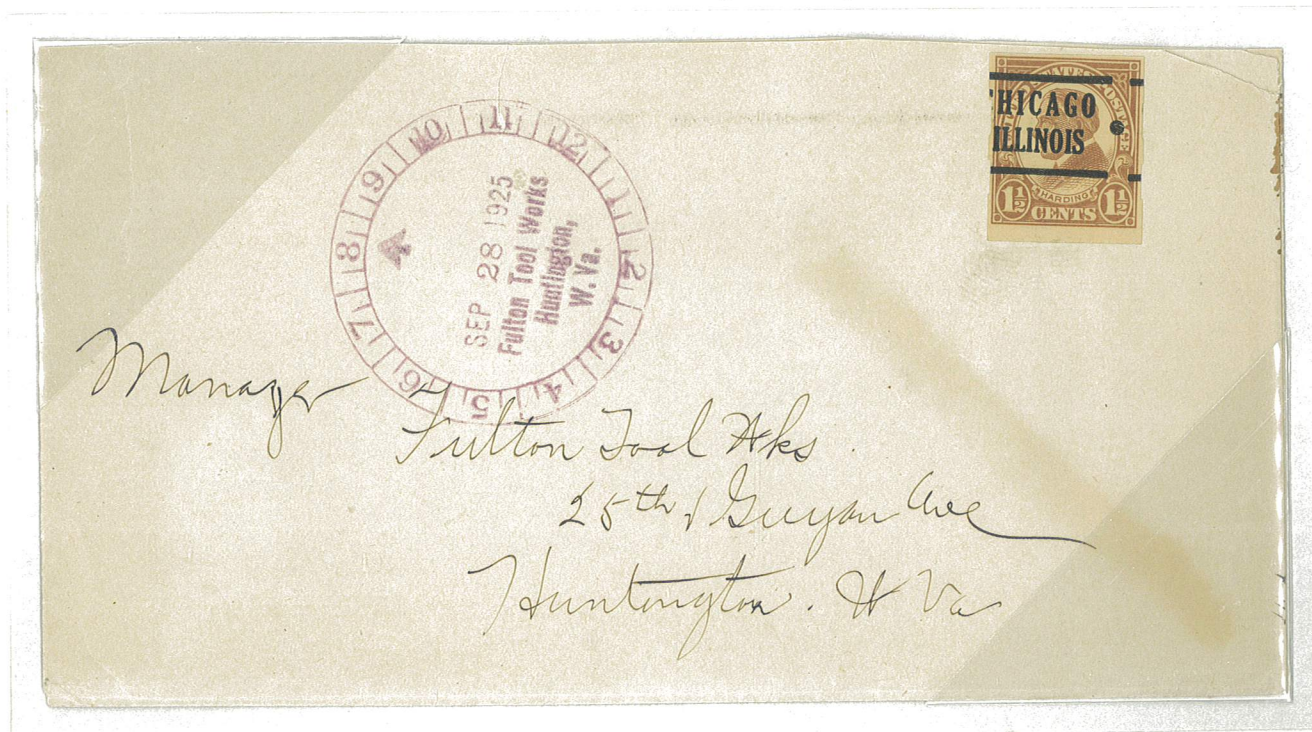 HICAGO
ILLINOIS
HARDING
1½ CENTS 1½
11 12 1 2 3 4 5 6 7 8 9 10
SEP 28 1925
Fulton Tool Works
Huntington,
W. Va.
Manager
Fulton Tool Wks
25th & Guyan Ave
Huntington. W Va